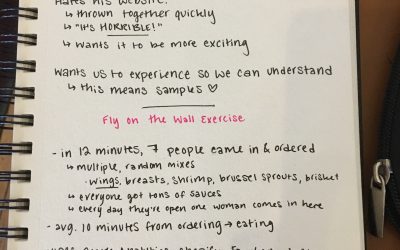 Hates his website.
↳ thrown together quickly
↳ "It's HORRIBLE!"
↳ wants it to be more exciting
Wants us to experience so we can understand
↳ this means samples ♡
Fly on the Wall Exercise
- in 12 minutes, 7 people came in & ordered
↳ multiple, random mixes
· wings, breasts, shrimp, brussel sprouts, brisket
↳ everyone got tons of sauces
↳ every day they're open one woman comes in here
- avg. 10 minutes from ordering → eating